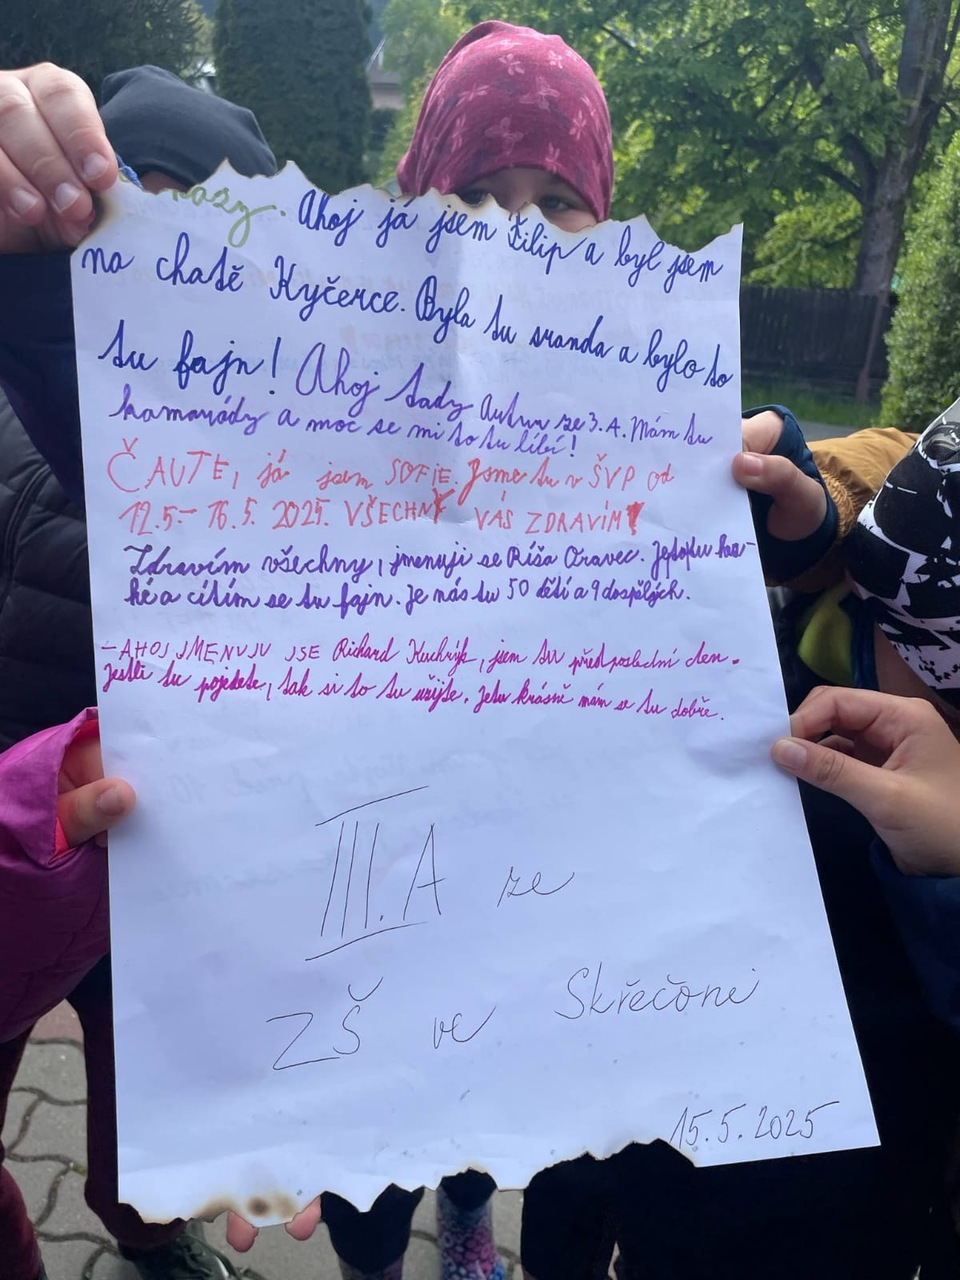 Ahoj já jsem Filip a byl jsem
na chatě Kyčerce. Byla tu sranda a bylo to
tu fajn! Ahoj tady Artur ze 3.A. Mám tu
kamarády a moc se mi to tu líbí!
ČAUTE, já jsem SOFIE. Jsme tu v ŠVP od
12.5.– 16.5. 2025. VŠECHNY VÁS ZDRAVÍM!
Zdravím všechny, jmenuji se Ríša Oravec. Je tu hez-
ké a cítím se tu fajn. Je nás tu 50 dětí a 9 dospělých.
– AHOJ JMENUJU JSE Richard, jsem tu předposlední den.
Jestli tu pojedete, tak si to tu užijte. Je tu krásně mám se tu dobře.
III.A ze
ZŠ ve Skřečoni
15.5.2025